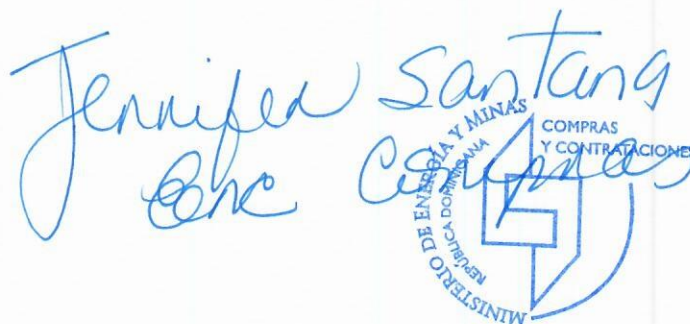 Jennifer Santana
Enc Compras
MINISTERIO DE ENERGÍA Y MINAS
REPÚBLICA DOMINICANA
COMPRAS
Y CONTRATACIONES